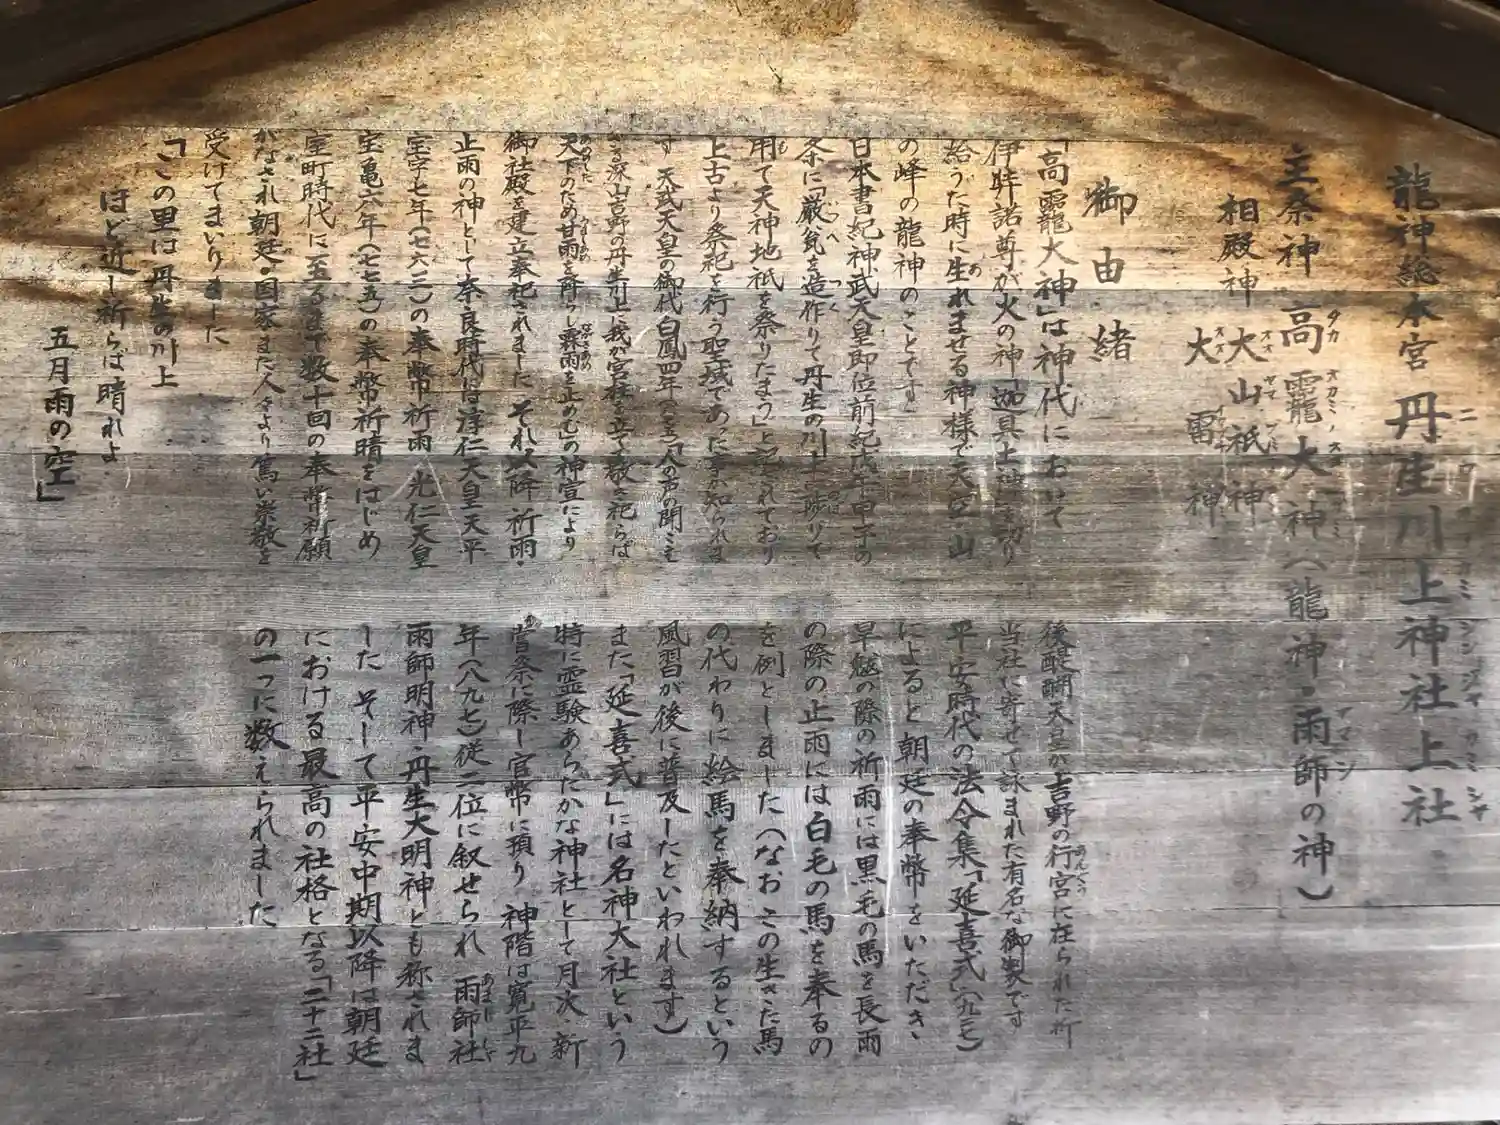 龍神総本宮 丹生川上神社上社
ニウカワカミジンジヤカミシャ
主祭神 高龗大神(龍神・雨師の神)
タカオカミノオオカミ アマシ
相殿神 大山祇神
オオヤマヅミ
大雷神
オオ
御由緒
「高龗大神」は神代において
伊弉諾尊が火の神「迦具土神」を切り
給うた時に生れませる神様で天空山
の峰の龍神のことです
日本書紀神武天皇即位前紀戊午甲子の
条に「厳瓮を造作りて丹生の川上に陟りて
用て天神地祇を祭りたまう」と記されており
上古より祭祀を行う聖域であった事が知られま
す 天武天皇の御代白鳳四年(六七五)「人の声の聞こえ
ざる深山吉野の丹生川上に我が宮柱を立て敬き祀らば
天下のため甘雨を降らし霖雨を止めむ」の神宣により
御社殿を建立奉祀されました それ以降 祈雨・
止雨の神として奈良時代は淳仁天皇天平
宝字七年(七六三)の奉幣祈雨 光仁天皇
宝亀六年(七七五)の奉幣祈晴をはじめ
室町時代に至るまで数十回の奉幣祈願
がなされ朝廷・国家また人々より篤い崇敬を
受けてまいりました
「この里は丹生の川上
ほど近し祈らば晴れよ
五月雨の空」
後醍醐天皇が吉野の行宮に在られた折
当社に寄せて詠まれた有名な御製です
平安時代の法令集「延喜式」(九二七)
によると朝廷の奉幣をいただき
旱魃の際の祈雨には黒毛の馬を長雨
の際の止雨には白毛の馬を奉るの
を例としました(なおこの生きた馬
の代わりに絵馬を奉納するという
風習が後に普及したといわれます)
また「延喜式」には名神大社という
特に霊験あらたかな神社として月次・新
嘗祭に際し官幣に預り 神階は寛平九
年(八九七)従二位に叙せられ 雨師社
雨師明神・丹生大明神とも称されま
した そして平安中期以降は朝廷
における最高の社格となる「二十二社」
の一つに数えられました